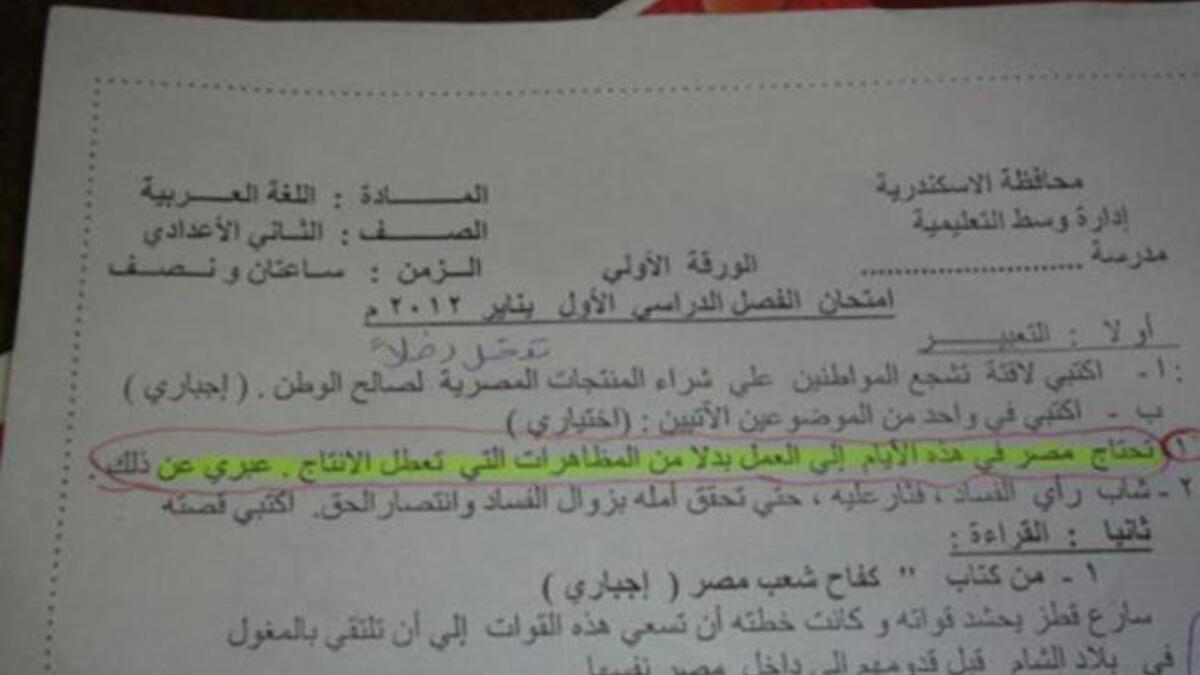 محافظة الاسكندرية
إدارة وسط التعليمية
مدرسة ..........................
المــــــادة : اللغة العــربية
الصــــف : الثاني الأعدادي
الــزمن : ساعتان ونصف
الورقة الأولي
امتحان الفصل الدراسي الأول يناير ٢٠١٢ م
أولا : التعبيــــــر
١- اكتبي لافتة تشجع المواطنين علي شراء المنتجات المصرية لصالح الوطن . ( إجباري )
ب - اكتبي في واحد من الموضوعين الآتيين : (اختياري )
١ تحتاج مصر في هذه الأيام إلي العمل بدلا من المظاهرات التي تعطل الانتاج . عبري عن ذلك
٢- شاب رأي الفساد ، فثار عليه ، حتي تحقق أمله بزوال الفساد وانتصار الحق. اكتبي قصته
ثانيا : القراءة :
١ - من كتاب " كفاح شعب مصر ( إجباري )
سارع قطز بحشد قواته و كانت خطته أن تسعي هذه القوات إلي أن تلتقي بالمغول
في بلاد الشام قبل قدومهم إلى داخل مصر نفسها